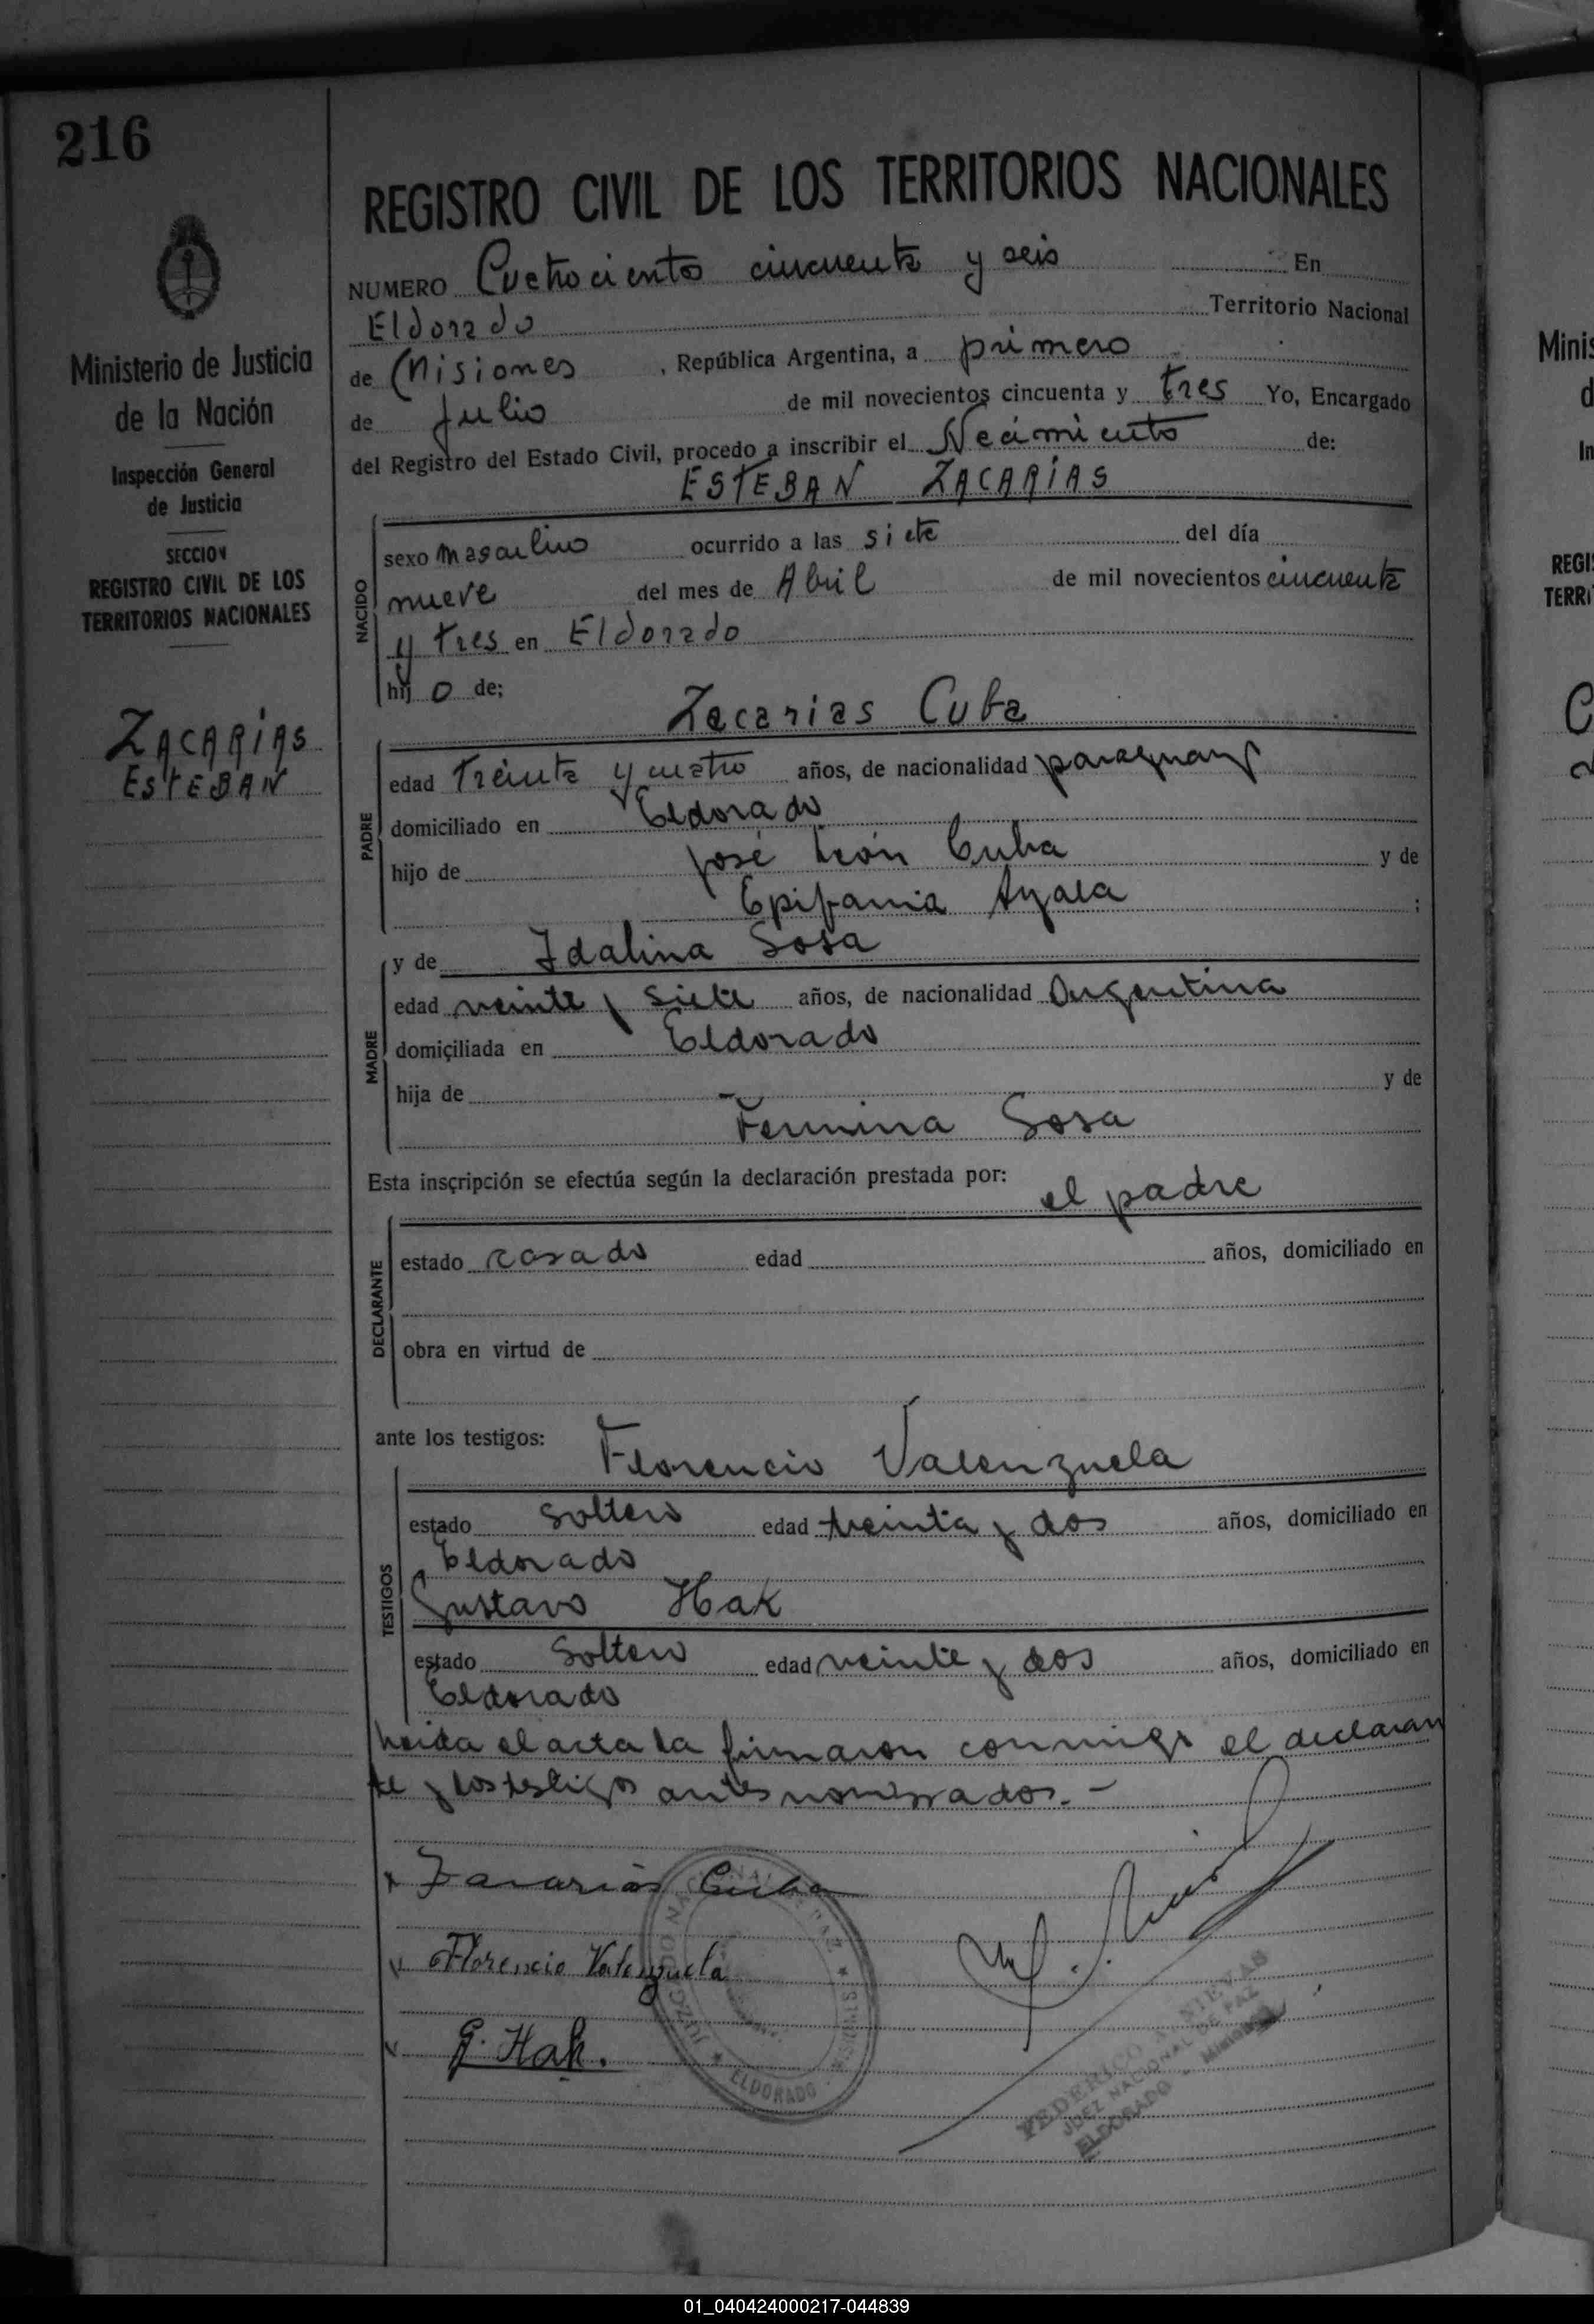 216
Ministerio de Justicia
de la Nación
Inspección General
de Justicia
SECCION
REGISTRO CIVIL DE LOS
TERRITORIOS NACIONALES
ZACARÍAS
ESTEBAN
REGISTRO CIVIL DE LOS TERRITORIOS NACIONALES
NUMERO Cuatrociento cincuenta y seis En
Eldorado Territorio Nacional
de Misiones , República Argentina, a primero
de Julio de mil novecientos cincuenta y tres Yo, Encargado
del Registro del Estado Civil, procedo a inscribir el Nacimiento de:
ESTEBAN ZACARÍAS
NACIDO
sexo masculino ocurrido a las siete del día
nueve del mes de Abril de mil novecientos cincuenta
y tres en Eldorado
hij o de;
Zacarias Cuba
PADRE
edad Treinta y cuatro años, de nacionalidad paraguay
domiciliado en Eldorado
hijo de José León Cuba y de
Epifania Ayala ;
y de Idalina Sosa
MADRE
edad veinte y siete años, de nacionalidad Argentina
domiciliada en Eldorado
hija de y de
Fermina Sosa
Esta inscripción se efectúa según la declaración prestada por: el padre
DECLARANTE
estado casado edad años, domiciliado en
obra en virtud de
ante los testigos: Florencio Valenzuela
TESTIGOS
estado soltero edad treinta y dos años, domiciliado en
Eldorado
Gustavo Hak
estado soltero edad veinte y dos años, domiciliado en
Eldorado
Leida el acta la firmaron conmigo el declaran
te y los testigos antes nombrados.-
Zacarias Cuba
Florencio Valenzuela
G. Hak.
JUZGADO NACIONAL DE PAZ ★ MISIONES ★ ELDORADO
FEDERICO A. NIEVAS
JUEZ NACIONAL DE PAZ
ELDORADO - Misiones
Minis
d
In
REGI
TERRI
01_040424000217-044839